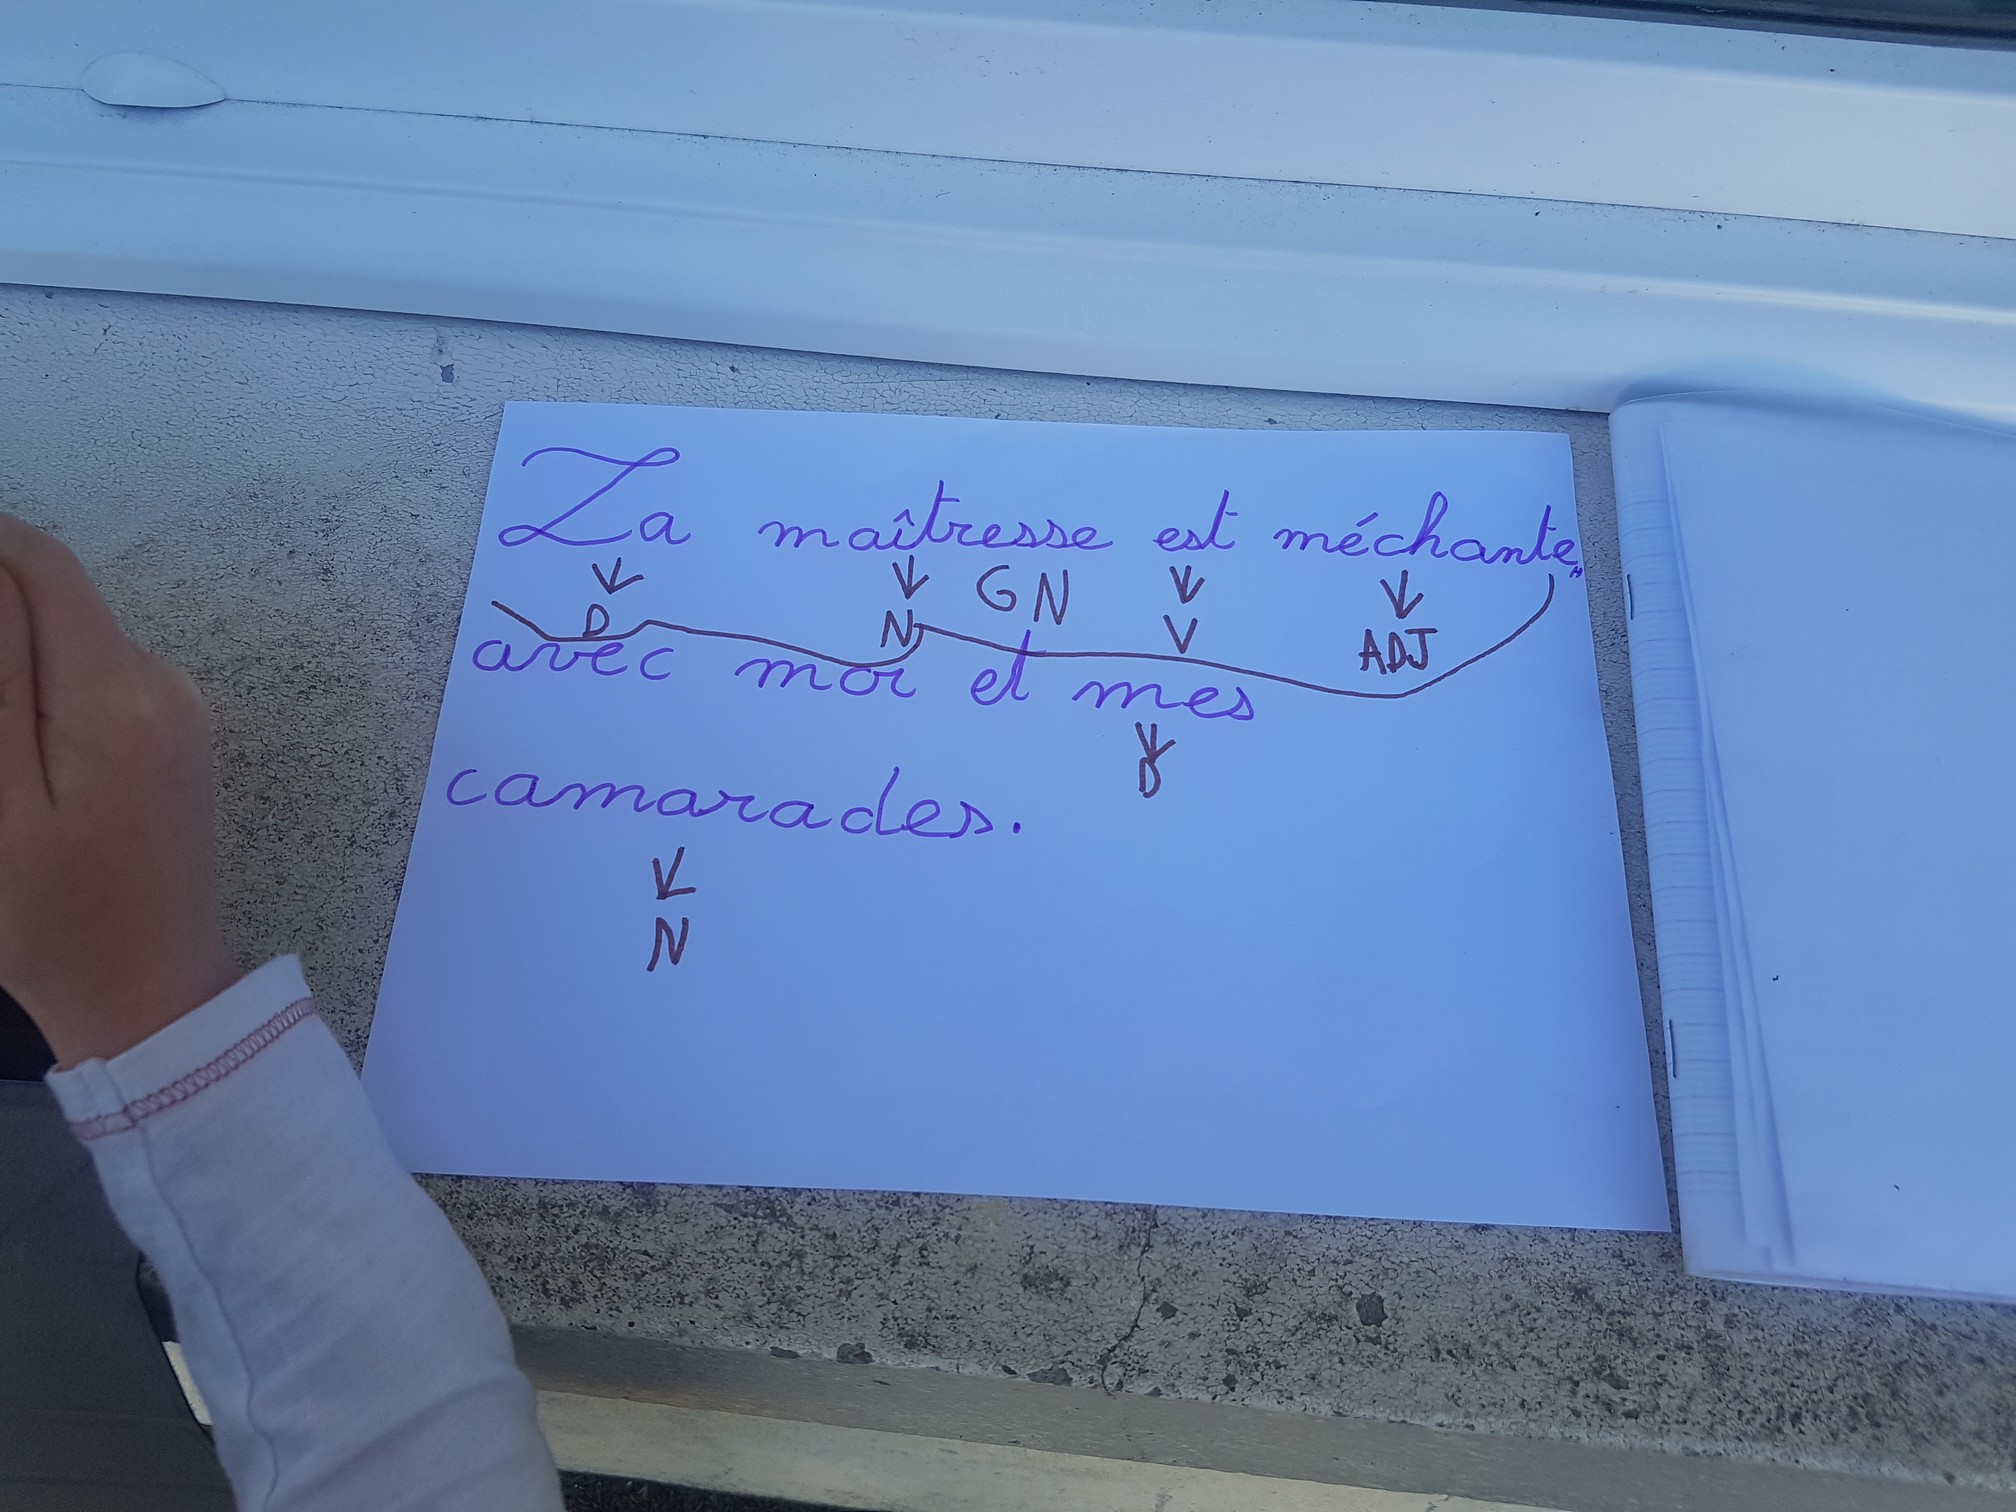 La maîtresse est méchante
D N GN V ADJ
avec moi et mes
D
camarades.
N